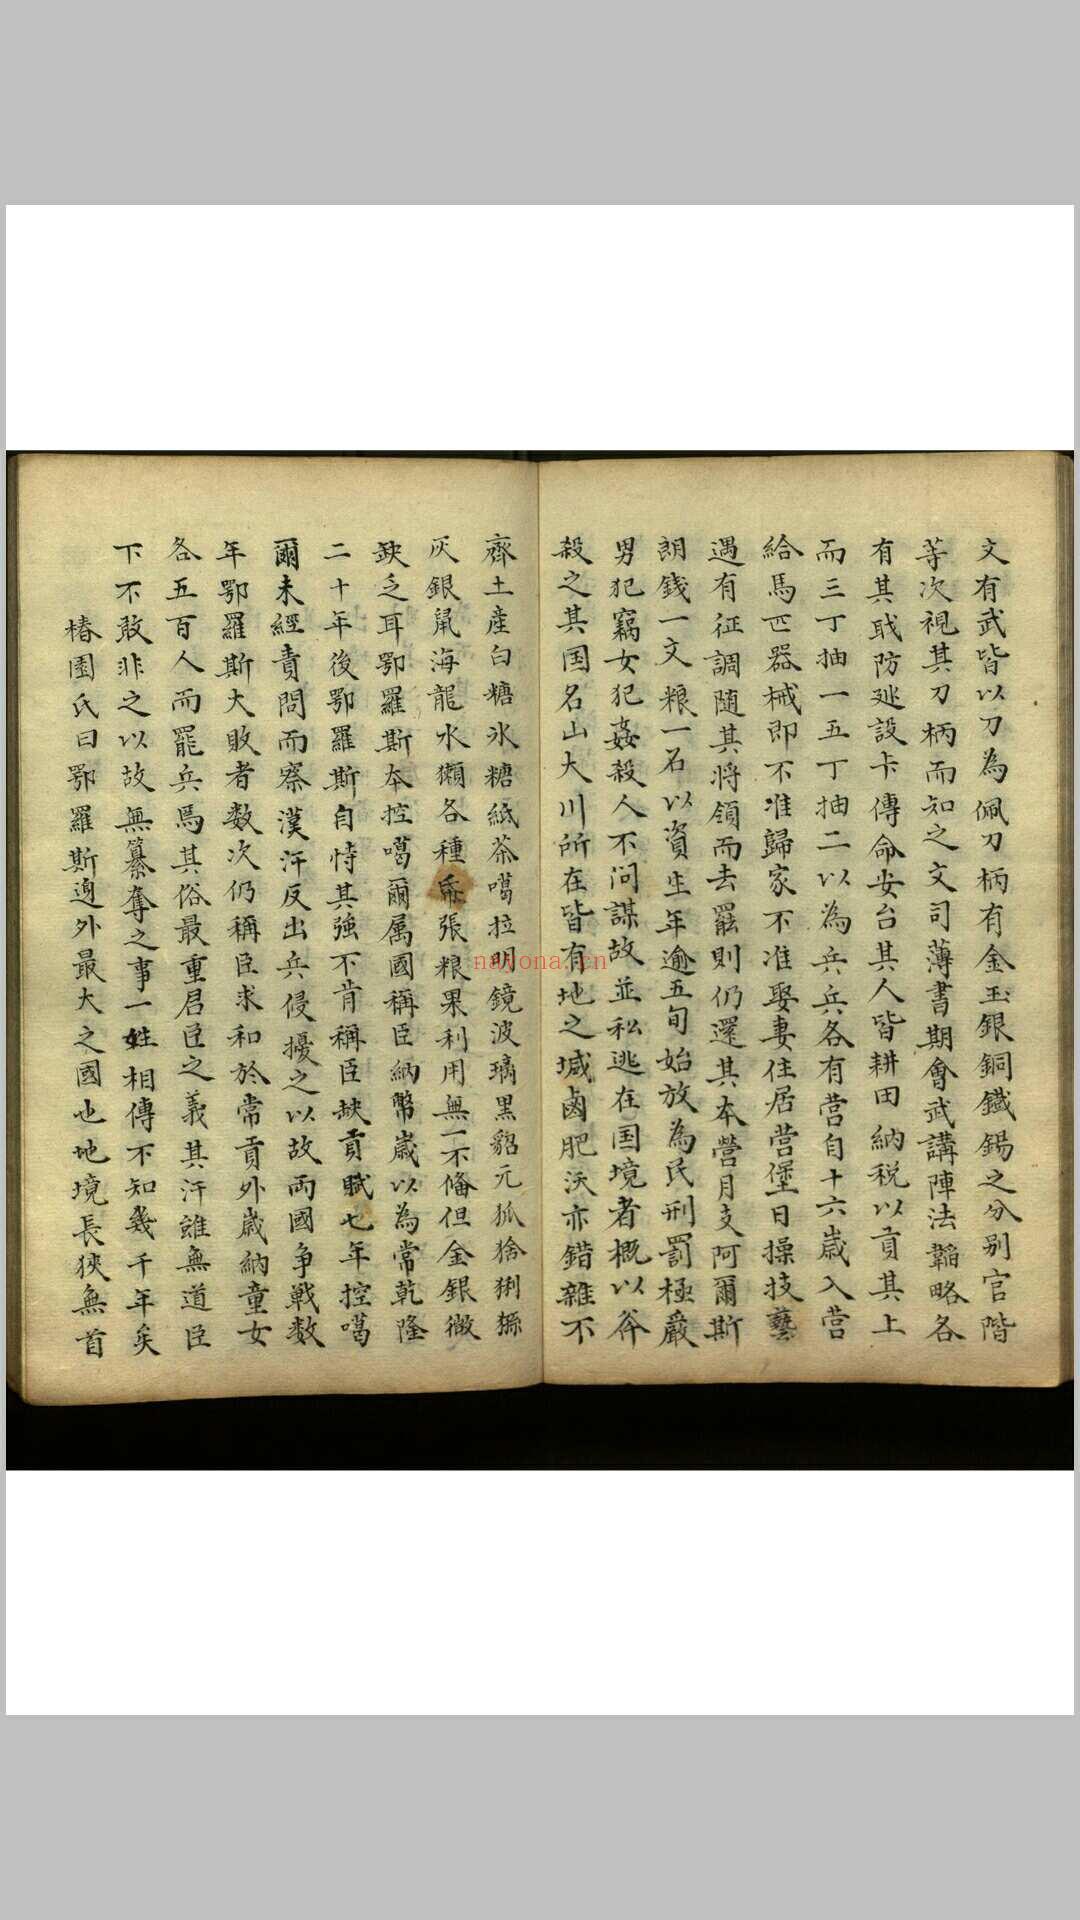 文有武皆以刀為佩刀柄有金玉銀銅鐵錫之分别官階
等次視其刀柄而知之文司薄書期會武講陣法韜略各
有其戢防廵設卡傳命安台其人皆耕田納税以貢其上
而三丁抽一五丁抽二以為兵兵各有营自十六歲入营
給馬匹器械即不准歸家不准娶妻住居营堡日操技藝
遇有征調随其将領而去罷則仍還其本营月支阿爾斯
朗錢一文粮一石以資生年逾五旬始放為民刑罰極嚴
男犯竊女犯姦殺人不问謀故並私逃在国境者概以斧
殺之其国名山大川所在皆有地之堿鹵肥沃亦錯雜不
齊土產白糖氷糖紙茶噶拉明鏡波璃黑貂元狐猞猁猻
灰銀鼠海龍水獺各種氊張粮果利用無一不俻但金銀微
缺乏耳鄂羅斯本控噶爾属國稱臣納幣歲以為常乾隆
二十年後鄂羅斯自恃其強不肯稱臣缺貢賦七年控噶
爾未經責問而察漢汗反出兵侵擾之以故両國争戰数
年鄂羅斯大敗者数次仍稱臣求和於常貢外歲納童女
各五百人而罷兵馬其俗最重君臣之義其汗雖無道臣
下不敢非之以故無纂奪之事一姓相傳不知幾千年矣
椿園氏曰鄂羅斯邊外最大之國也地境長狹無首
nayona.cn